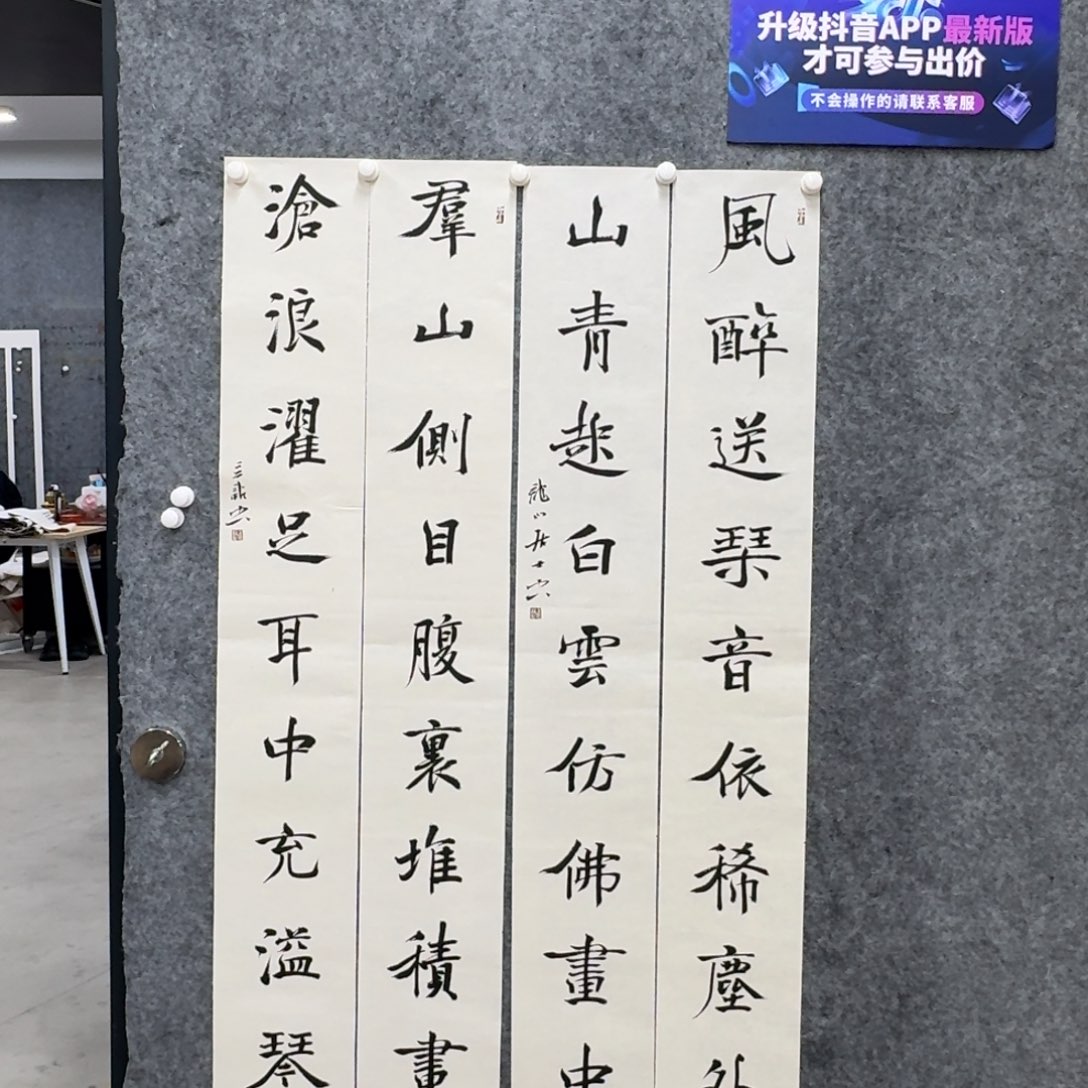 升级抖音APP最新版
才可参与出价
不会操作的请联系客服
風醉送琹音依稀塵外
山青趂白雲仿佛畫中
龍山居士
羣山側目腹裏堆積畫
滄浪濯足耳中充溢琴